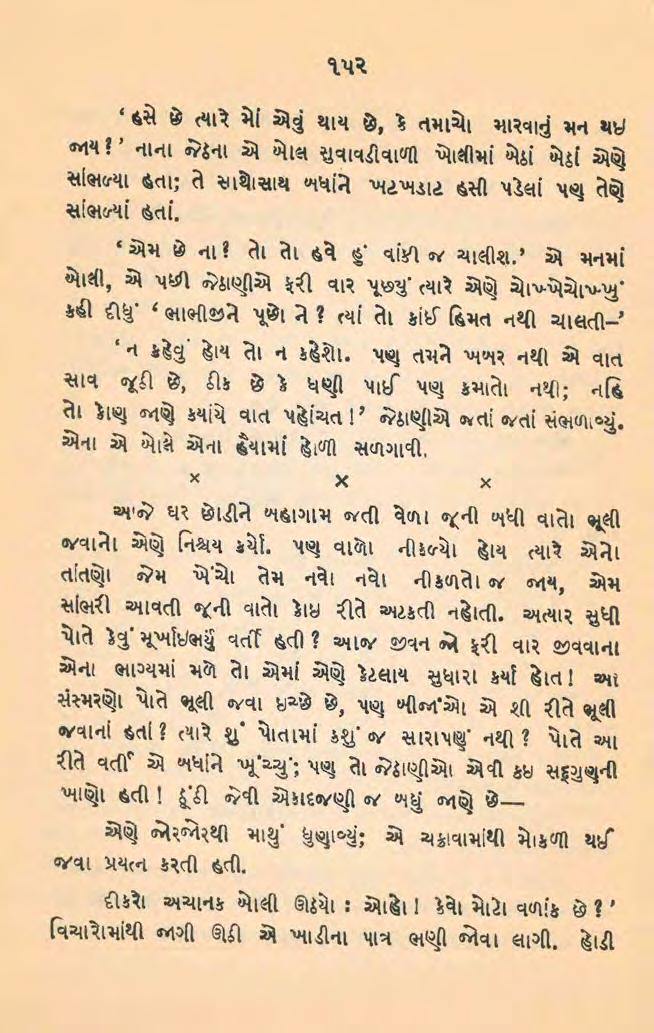 ૧૫૨
‘ હસે છે ત્યારે મોં એવું થાય છે, કે તમાચો મારવાનું મન થઇ
જાય ? ’ નાના જેઠના એ બોલ સુવાવડીવાળી ખોલીમાં બેઠાં બેઠાં એણે
સાંભળ્યા હતા; તે સાથોસાથ બધાંને ખટખડાટ હસી પડેલાં પણ તેણે
સાંભળ્યાં હતાં.
‘ એમ છે ના ? તો તો હવે હું વાંકી જ ચાલીશ. ’ એ મનમાં
બોલી, એ પછી જેઠાણીએ ફરી વાર પૂછ્યું ત્યારે એણે ચોખ્ખેચોખ્ખું
કહી દીધું ‘ ભાભીજીને પૂછો ને ? ત્યાં તો કાંઈ હિમત નથી ચાલતી–’
‘ ન કહેવું હોય તો ન કહેશો. પણ તમને ખબર નથી એ વાત
સાવ જૂઠી છે, ઠીક છે કે ધણી પાઈ પણ કમાતો નથી; નહિ
તો કોણ જાણે કયાંયે વાત પહોંચત ! ’ જેઠાણીએ જતાં જતાં સંભળાવ્યું.
એના એ બોલે એના હૈયામાં હોળી સળગાવી.
× × ×
આજે ઘર છોડીને બહાગામ જતી વેળા જૂની બધી વાતો ભૂલી
જવાનો એણે નિશ્ચય કર્યો. પણ વાળો નીકળ્યો હોય ત્યારે એનો
તાંતણો જેમ ખેંચો તેમ નવો નવો નીકળતો જ જાય, એમ
સાંભરી આવતી જૂની વાતો કોઇ રીતે અટકતી નહોતી. અત્યાર સુધી
પોતે કેવું મૂર્ખાઇભર્યું વર્તી હતી ? આજ જીવન જો ફરી વાર જીવવાના
એના ભાગ્યમાં મળે તો એમાં એણે કેટલાય સુધારા કર્યા હોત ! આ
સંસ્મરણો પોતે ભૂલી જવા ઇચ્છે છે, પણ બીજાંઓ એ શી રીતે ભૂલી
જવાનાં હતાં ? ત્યારે શું પોતામાં કશું જ સારાપણું નથી ? પોતે આ
રીતે વર્તી એ બધાંને ખૂંચ્યું; પણ તો જેઠાણીઓ એવી કઇ સદ્ગુણની
ખાણો હતી ! ઠૂંઠી જેવી એકાદજણી જ બધું જાણે છે—
એણે જોરજોરથી માથું ધુણાવ્યું; એ ચક્રાવામાંથી મોકળી થઈ
જવા પ્રયત્ન કરતી હતી.
દીકરો અચાનક બોલી ઊઠયો : ઓહો ! કેવો મોટો વળાંક છે ? ’
વિચારોમાંથી જાગી ઊઠી એ ખાડીના પાત્ર ભણી જોવા લાગી. હોડી